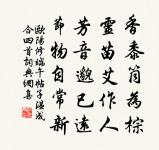 香黍筒為粽
靈苗艾作人
芳音邈已遠
節物自常新
歐陽修端午帖子溫成
合四首詞典網書